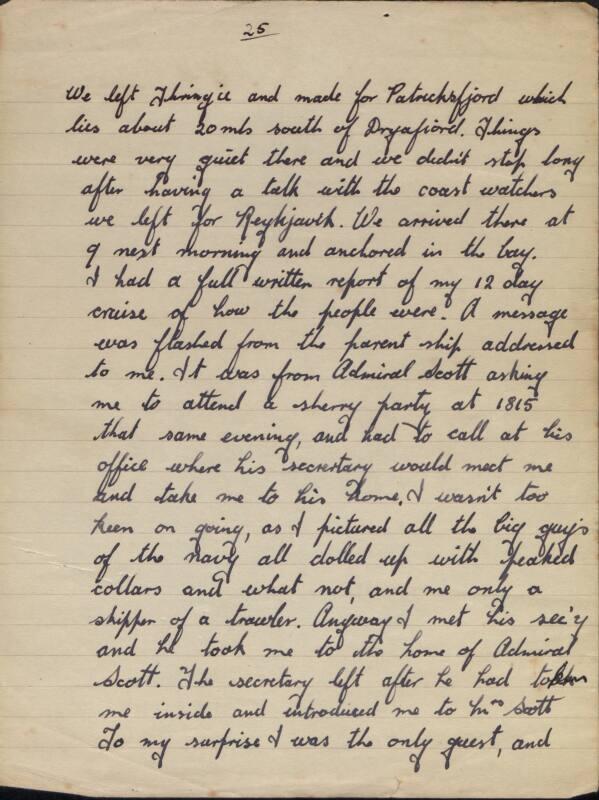 25
We left Thringie and made for Patricksfjord which
lies about 20mls south of Dryafiord. Things
were very quiet there and we didn't stop long
after having a talk with the coast watchers
we left for Reykjavik. We arrived there at
9 nest morning and anchored in the bay.
I had a full written report of my 12 day
cruise of how the people were. A message
was flashed from the parent ship addressed
to me. It was from Admiral Scott asking
me to attend a sherry party at 1815
that same evening, and had to call at his
office where his secrertary would meet me
and take me to his home. I wasn't too
keen on going, as I pictured all the big guys
of the navy all dolled up with peaked
collars and what not, and me only a
skipper of a trawler. Anyway I met his sec'y
and he took me to the home of Admiral
Scott. The secretary left after he had taken
me inside and introduced me to Mrs Scott
To my surprise I was the only guest, and